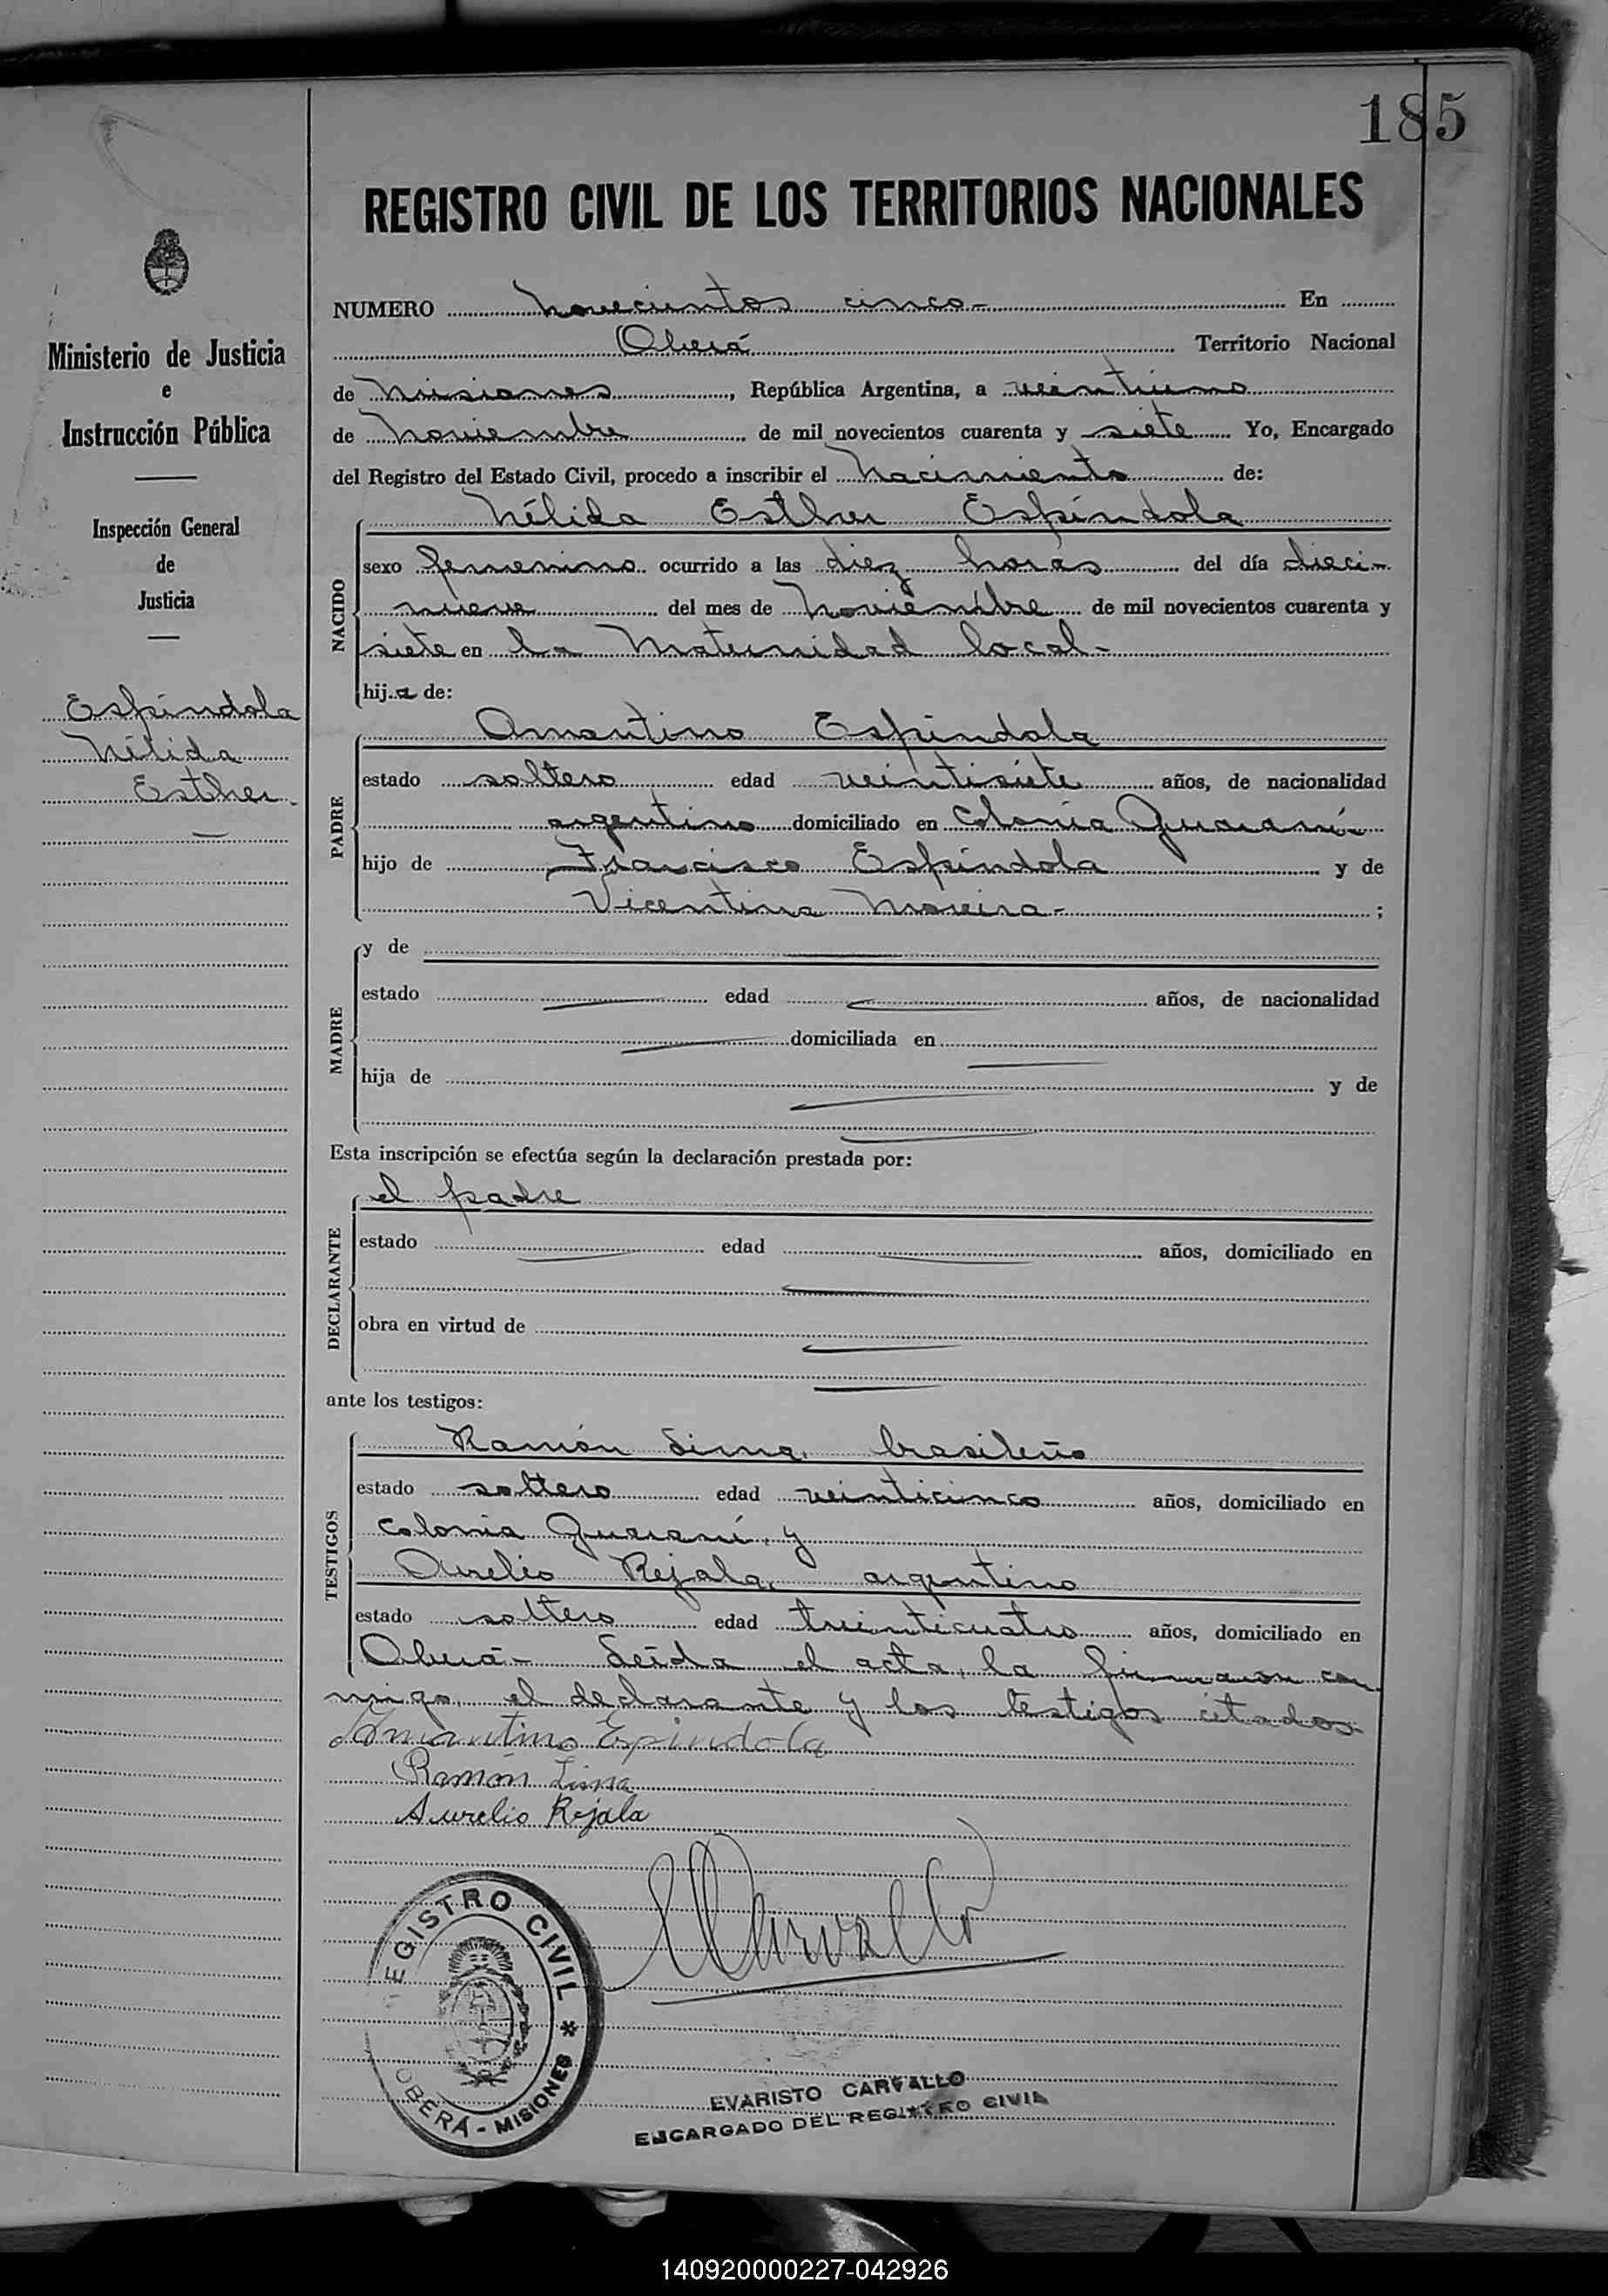 185
REGISTRO CIVIL DE LOS TERRITORIOS NACIONALES
Ministerio de Justicia
e
Instrucción Pública
Inspección General
de
Justicia
Espíndola
Nélida
Esther.
NUMERO novecientos cinco- En
Oberá Territorio Nacional
de Misiones, República Argentina, a veintiuno
de noviembre de mil novecientos cuarenta y siete Yo, Encargado
del Registro del Estado Civil, procedo a inscribir el nacimiento de:
NACIDO
Nélida Esther Espíndola
sexo femenino ocurrido a las diez horas del día dieci-
nueve del mes de noviembre de mil novecientos cuarenta y
siete en la Maternidad local-
hija de:
PADRE
Amantino Espíndola
estado soltero edad veintisiete años, de nacionalidad
argentino domiciliado en Colonia Guaraní-
hijo de Francisco Espíndola y de
Vicentina Moreira- ;
MADRE
y de
estado edad años, de nacionalidad
domiciliada en
hija de y de
Esta inscripción se efectúa según la declaración prestada por:
DECLARANTE
el padre
estado edad años, domiciliado en
obra en virtud de
ante los testigos:
TESTIGOS
Ramón Lima, brasileño
estado soltero edad veinticinco años, domiciliado en
Colonia Guaraní, y
Aurelio Rejala, argentino
estado soltero edad treinticuatro años, domiciliado en
Oberá- Leída el acta, la firmaron con-
migo, el declarante y los testigos citados-
Amantino Espindola
Ramón Lima
Aurelio Rejala
ECarvallo
REGISTRO CIVIL * OBERÁ - MISIONES
EVARISTO CARVALLO
ENCARGADO DEL REGISTRO CIVIL
140920000227-042926